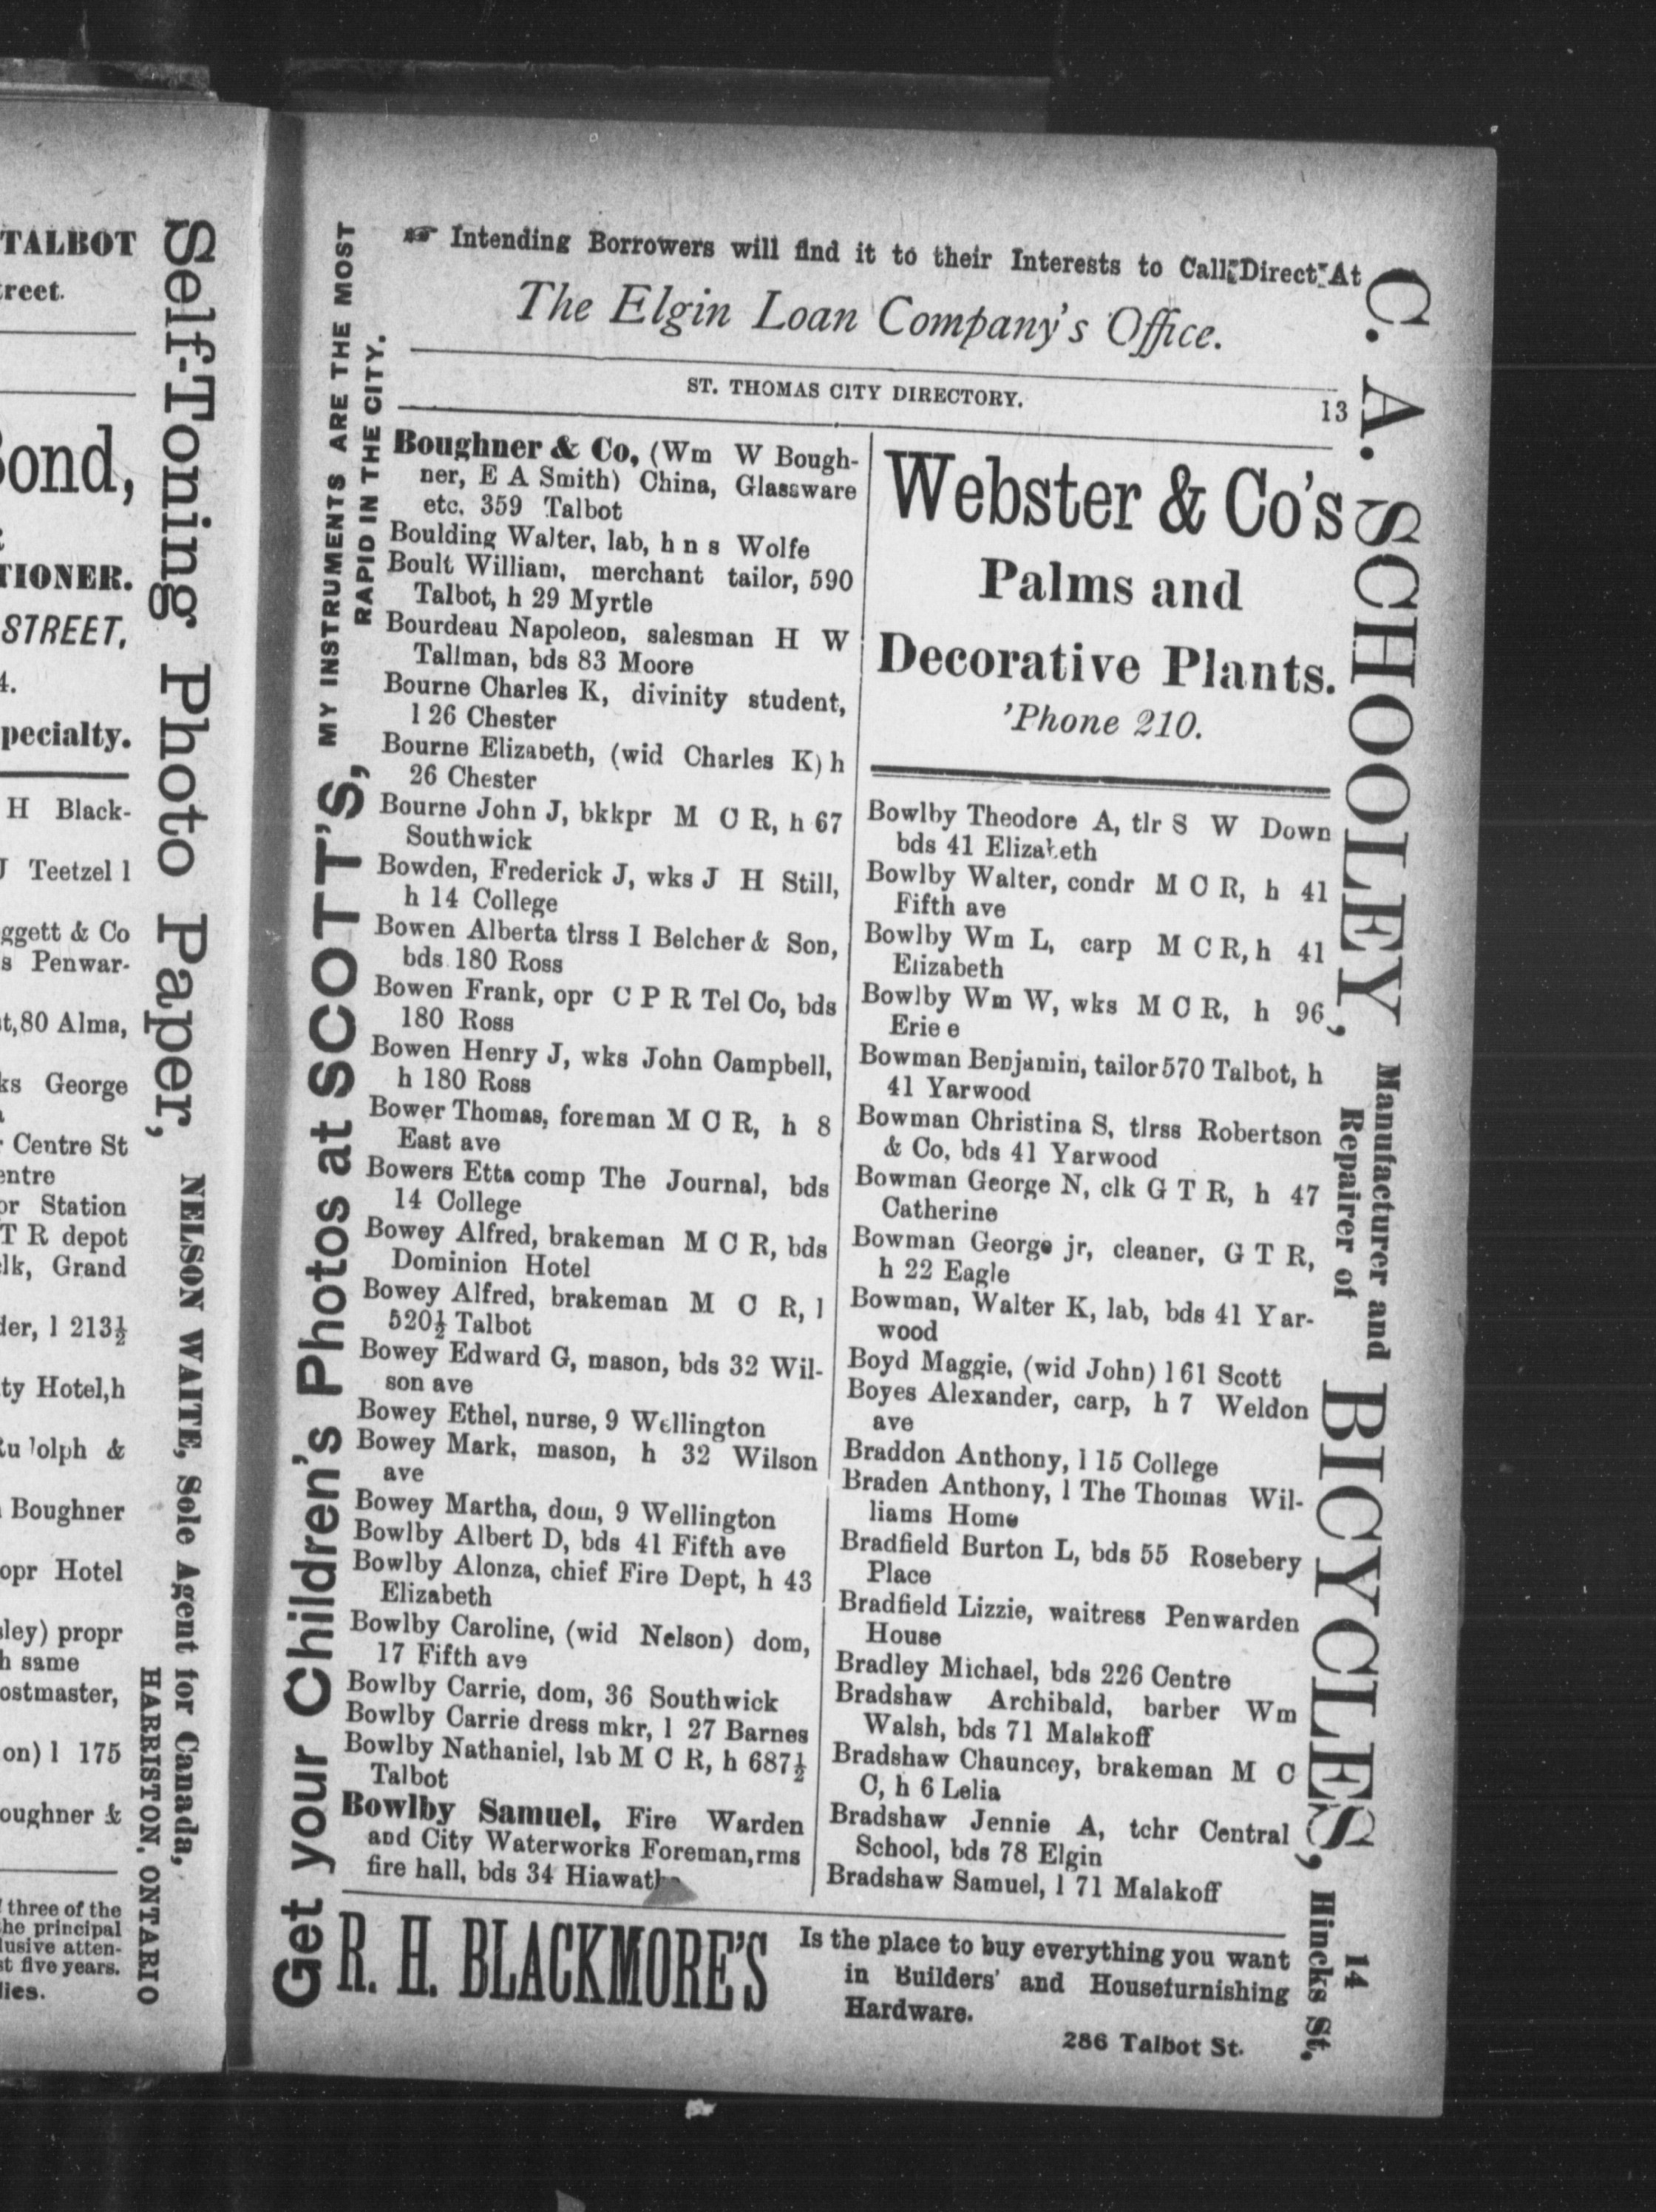 TALBOT
reet.
ond,
TIONER.
STREET,
4.
pecialty.
H Black-
J Teetzel l
ggett & Co
s Penwar-
t, 80 Alma,
ks George
Centre St
entre
or Station
T R depot
lk, Grand
der, l 213½
ty Hotel, h
olph &
Boughner
opr Hotel
sley) propr
h same
ostmaster,
on) l 175
oughner &
three of the
he principal
lusive atten-
st five years.
lies.
Self-Toning Photo Paper,
NELSON WAITE, Sole Agent for Canada,
HARRISTON, ONTARIO
Get your Children's Photos at SCOTT'S,
MY INSTRUMENTS ARE THE MOST
RAPID IN THE CITY.
☞ Intending Borrowers will find it to their Interests to Call Direct At
The Elgin Loan Company's Office.
ST. THOMAS CITY DIRECTORY. 13
Boughner & Co, (Wm W Bough-
ner, E A Smith) China, Glassware
etc. 359 Talbot
Boulding Walter, lab, h n s Wolfe
Boult William, merchant tailor, 590
Talbot, h 29 Myrtle
Bourdeau Napoleon, salesman H W
Tallman, bds 83 Moore
Bourne Charles K, divinity student,
l 26 Chester
Bourne Elizabeth, (wid Charles K) h
26 Chester
Bourne John J, bkkpr M C R, h 67
Southwick
Bowden, Frederick J, wks J H Still,
h 14 College
Bowen Alberta tlrss I Belcher & Son,
bds 180 Ross
Bowen Frank, opr C P R Tel Co, bds
180 Ross
Bowen Henry J, wks John Campbell,
h 180 Ross
Bower Thomas, foreman M C R, h 8
East ave
Bowers Etta comp The Journal, bds
14 College
Bowey Alfred, brakeman M C R, bds
Dominion Hotel
Bowey Alfred, brakeman M C R, l
520½ Talbot
Bowey Edward G, mason, bds 32 Wil-
son ave
Bowey Ethel, nurse, 9 Wellington
Bowey Mark, mason, h 32 Wilson
ave
Bowey Martha, dom, 9 Wellington
Bowlby Albert D, bds 41 Fifth ave
Bowlby Alonza, chief Fire Dept, h 43
Elizabeth
Bowlby Caroline, (wid Nelson) dom,
17 Fifth ave
Bowlby Carrie, dom, 36 Southwick
Bowlby Carrie dress mkr, l 27 Barnes
Bowlby Nathaniel, lab M C R, h 687½
Talbot
Bowlby Samuel, Fire Warden
and City Waterworks Foreman, rms
fire hall, bds 34 Hiawatha
Webster & Co's
Palms and
Decorative Plants.
'Phone 210.
Bowlby Theodore A, tlr S W Down
bds 41 Elizabeth
Bowlby Walter, condr M C R, h 41
Fifth ave
Bowlby Wm L, carp M C R, h 41
Elizabeth
Bowlby Wm W, wks M C R, h 96
Erie e
Bowman Benjamin, tailor 570 Talbot, h
41 Yarwood
Bowman Christina S, tlrss Robertson
& Co, bds 41 Yarwood
Bowman George N, clk G T R, h 47
Catherine
Bowman George jr, cleaner, G T R,
h 22 Eagle
Bowman, Walter K, lab, bds 41 Yar-
wood
Boyd Maggie, (wid John) l 61 Scott
Boyes Alexander, carp, h 7 Weldon
ave
Braddon Anthony, l 15 College
Braden Anthony, l The Thomas Wil-
liams Home
Bradfield Burton L, bds 55 Rosebery
Place
Bradfield Lizzie, waitress Penwarden
House
Bradley Michael, bds 226 Centre
Bradshaw Archibald, barber Wm
Walsh, bds 71 Malakoff
Bradshaw Chauncey, brakeman M C
C, h 6 Lelia
Bradshaw Jennie A, tchr Central
School, bds 78 Elgin
Bradshaw Samuel, l 71 Malakoff
R. H. BLACKMORE'S
Is the place to buy everything you want
in Builders' and Housefurnishing
Hardware.
286 Talbot St.
C. A. SCHOOLEY,
Manufacturer and
Repairer of
BICYCLES,
14
Hincks St.